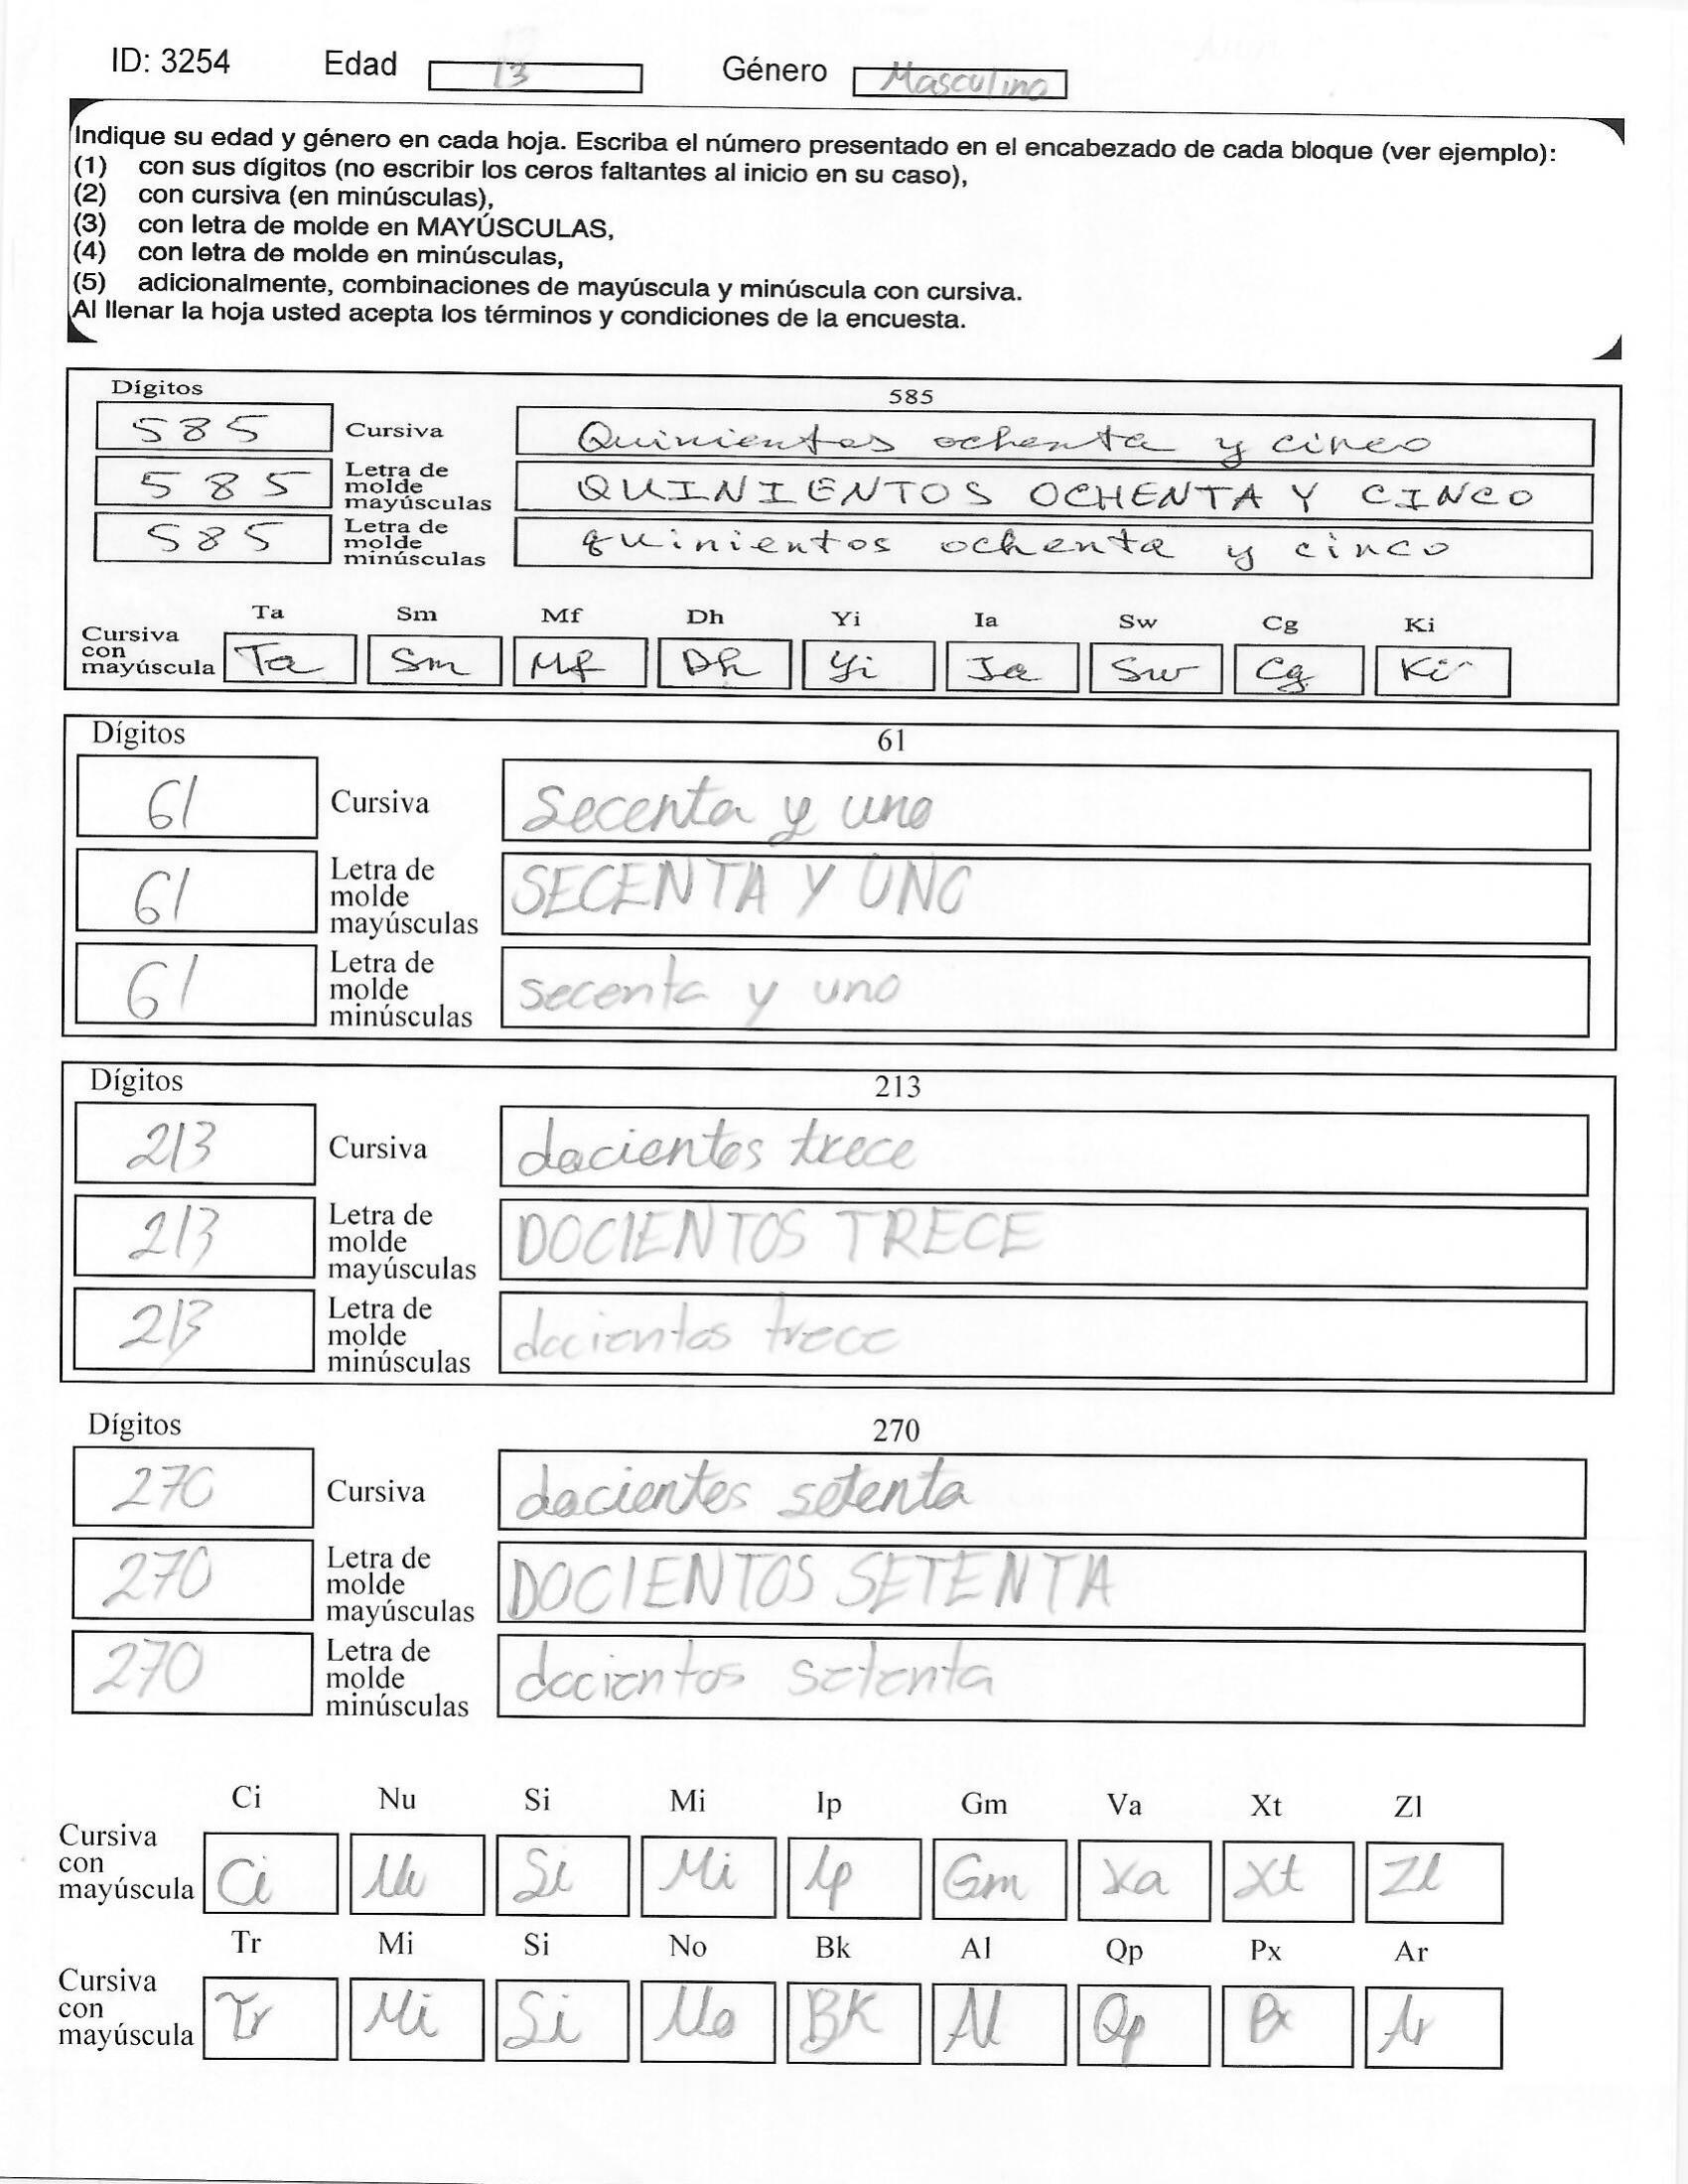 ID: 3254 Edad 13 Género Masculino
Indique su edad y género en cada hoja. Escriba el número presentado en el encabezado de cada bloque (ver ejemplo):
(1) con sus dígitos (no escribir los ceros faltantes al inicio en su caso),
(2) con cursiva (en minúsculas),
(3) con letra de molde en MAYÚSCULAS,
(4) con letra de molde en minúsculas,
(5) adicionalmente, combinaciones de mayúscula y minúscula con cursiva.
Al llenar la hoja usted acepta los términos y condiciones de la encuesta.
Dígitos 585
585 Cursiva Quinientos ochenta y cinco
585 Letra de molde mayúsculas QUINIENTOS OCHENTA Y CINCO
585 Letra de molde minúsculas quinientos ochenta y cinco
Ta Sm Mf Dh Yi Ia Sw Cg Ki
Cursiva con mayúscula Ta Sm Mf Dh Yi Ia Sw Cg Ki
Dígitos 61
61 Cursiva Secenta y uno
61 Letra de molde mayúsculas SECENTA Y UNO
61 Letra de molde minúsculas secenta y uno
Dígitos 213
213 Cursiva docientos trece
213 Letra de molde mayúsculas DOCIENTOS TRECE
213 Letra de molde minúsculas docientos trece
Dígitos 270
270 Cursiva docientos setenta
270 Letra de molde mayúsculas DOCIENTOS SETENTA
270 Letra de molde minúsculas docientos setenta
Ci Nu Si Mi Ip Gm Va Xt Zl
Cursiva con mayúscula Ci Nu Si Mi Ip Gm Va Xt Zl
Tr Mi Si No Bk Al Qp Px Ar
Cursiva con mayúscula Tr Mi Si No BK Al Qp Px Ar